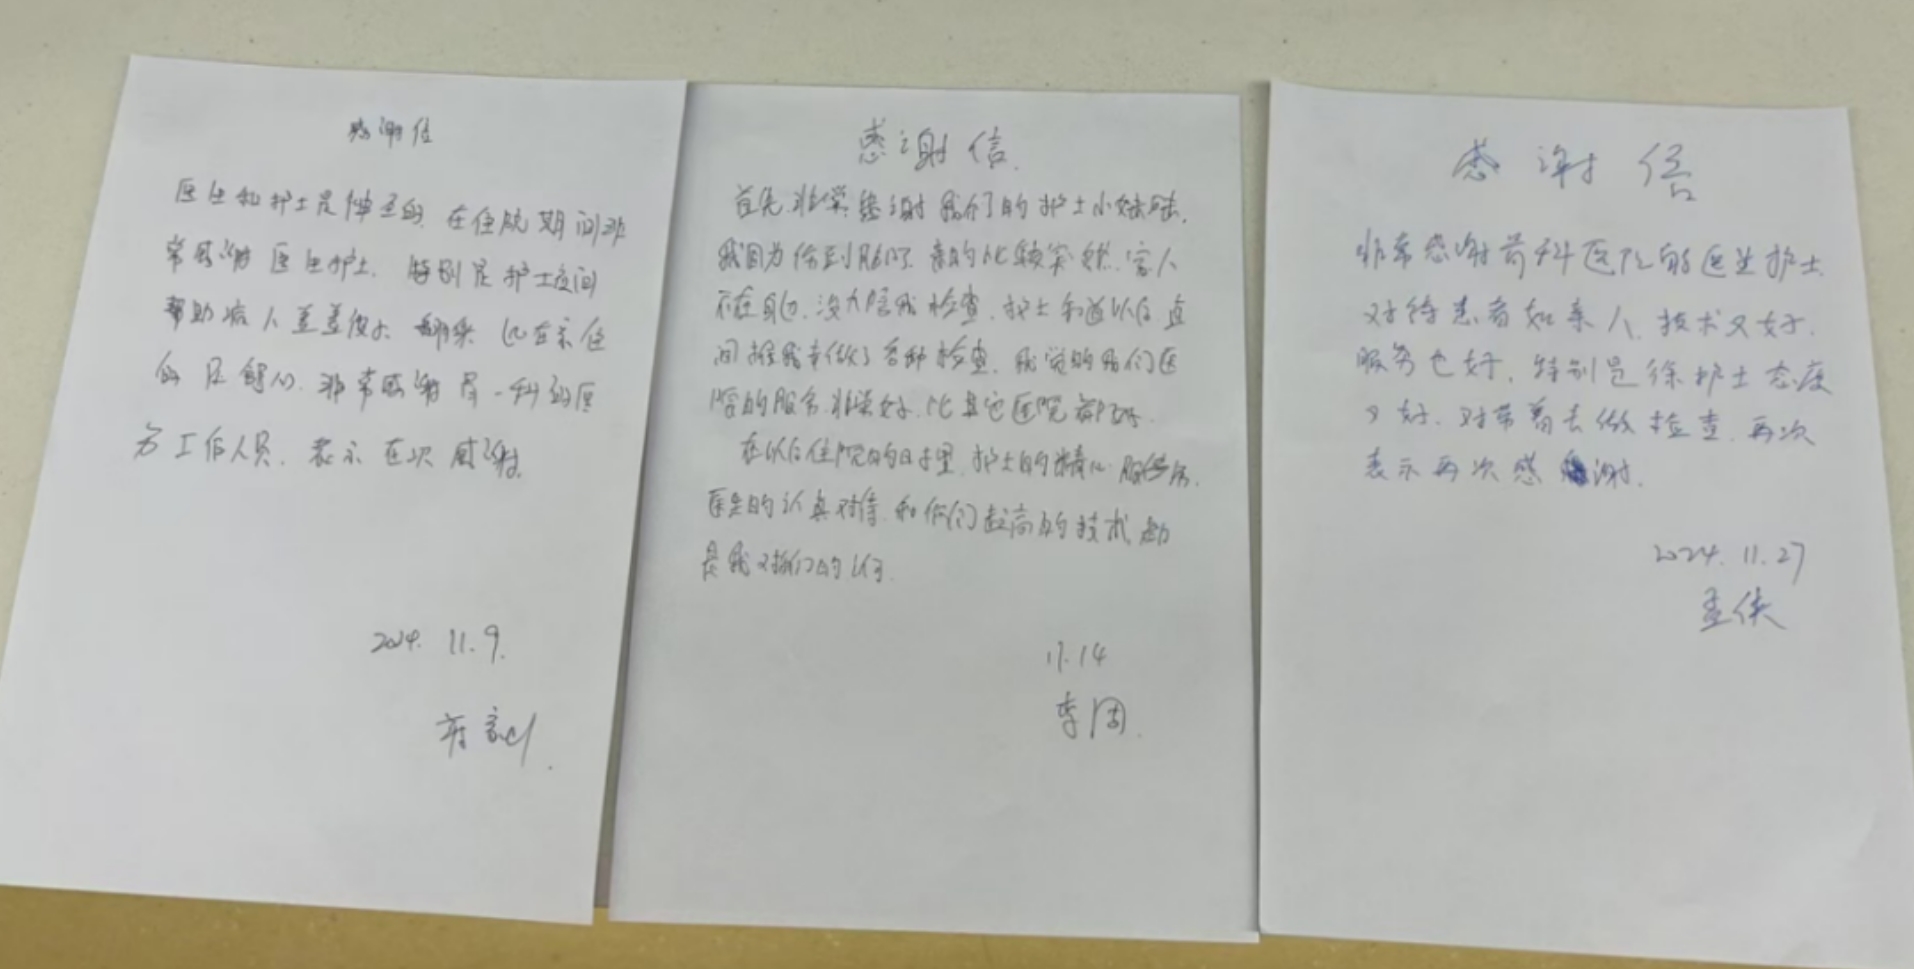 感谢信
医生和护士是神圣的 在住院期间非
常感谢医生护士. 特别是护士夜间
帮助病人盖盖被子.
的是解的. 非常感谢骨一科的医
务工作人员. 表示在次感谢.
2024. 11. 9.
感谢信.
首先.非常感谢我们的护士小妹妹.
我因为伤到 比较突然.家人
不在身边.没人陪我检查.护士知道以后.直
间 我去做了各种检查.我觉的我们医
院的服务.非常好.比其它医院都好.
在以后住院的日子里.护士的精心服务.
医生的认真对待.和你们超高的技术.
是我对 们的
11.14
李周.
感谢信
非常感谢骨科医院的医生护士.
对待患者如亲人.技术又好.
服务也好.特别是徐护士态度
又好.对带着去做检查.再次
表示再次感谢.
2024. 11. 27
孟侠